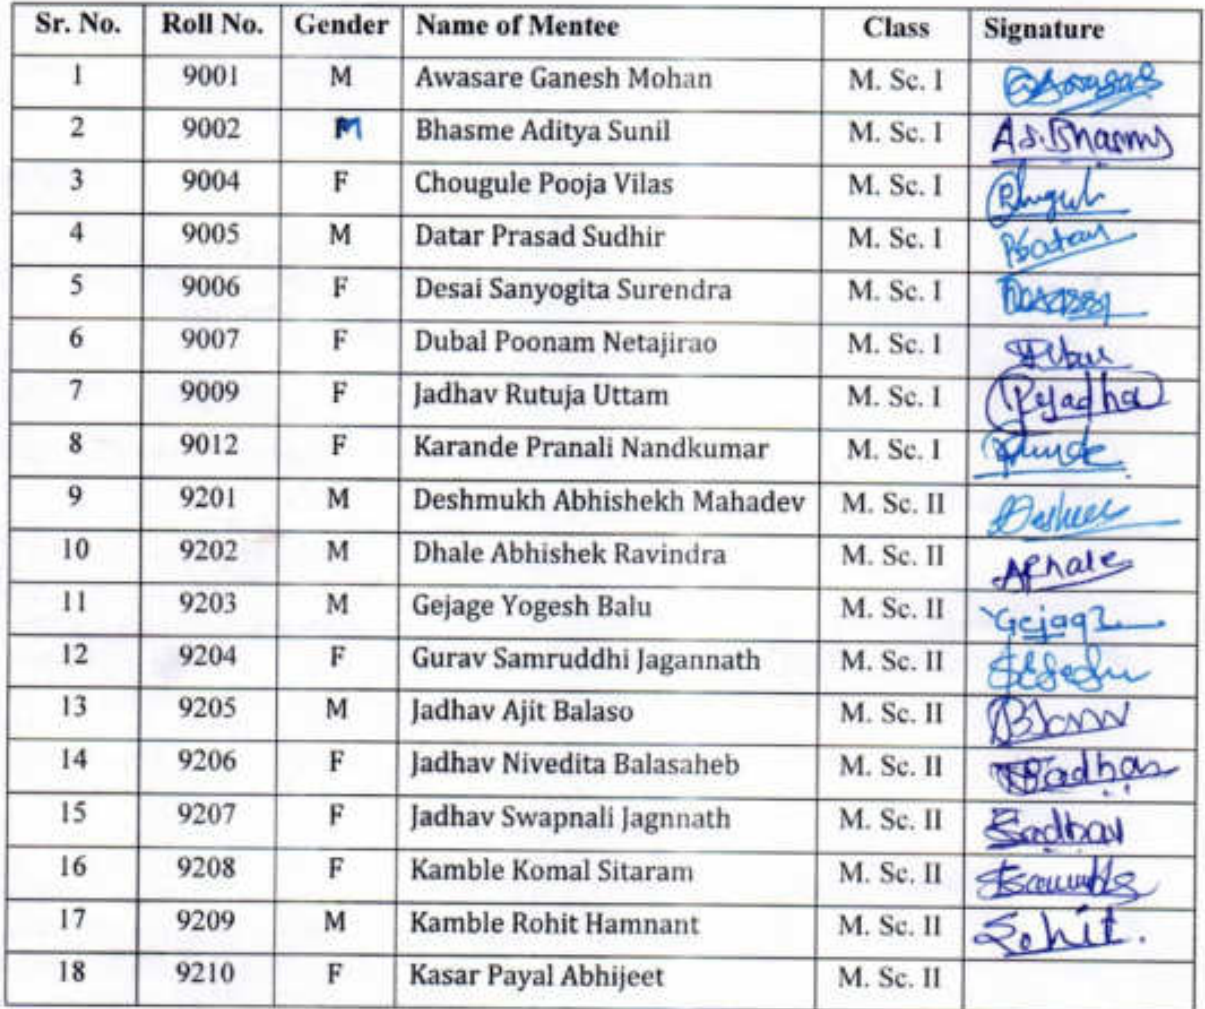 Sr. No. Roll No. Gender Name of Mentee Class Signature
1 9001 M Awasare Ganesh Mohan M. Sc. I
2 9002 M Bhasme Aditya Sunil M. Sc. I A.S.Bhasme
3 9004 F Chougule Pooja Vilas M. Sc. I
4 9005 M Datar Prasad Sudhir M. Sc. I
5 9006 F Desai Sanyogita Surendra M. Sc. I
6 9007 F Dubal Poonam Netajirao M. Sc. I
7 9009 F Jadhav Rutuja Uttam M. Sc. I
8 9012 F Karande Pranali Nandkumar M. Sc. I
9 9201 M Deshmukh Abhishekh Mahadev M. Sc. II
10 9202 M Dhale Abhishek Ravindra M. Sc. II
11 9203 M Gejage Yogesh Balu M. Sc. II Gejage
12 9204 F Gurav Samruddhi Jagannath M. Sc. II
13 9205 M Jadhav Ajit Balaso M. Sc. II
14 9206 F Jadhav Nivedita Balasaheb M. Sc. II
15 9207 F Jadhav Swapnali Jagnnath M. Sc. II
16 9208 F Kamble Komal Sitaram M. Sc. II
17 9209 M Kamble Rohit Hamnant M. Sc. II Rohit.
18 9210 F Kasar Payal Abhijeet M. Sc. II